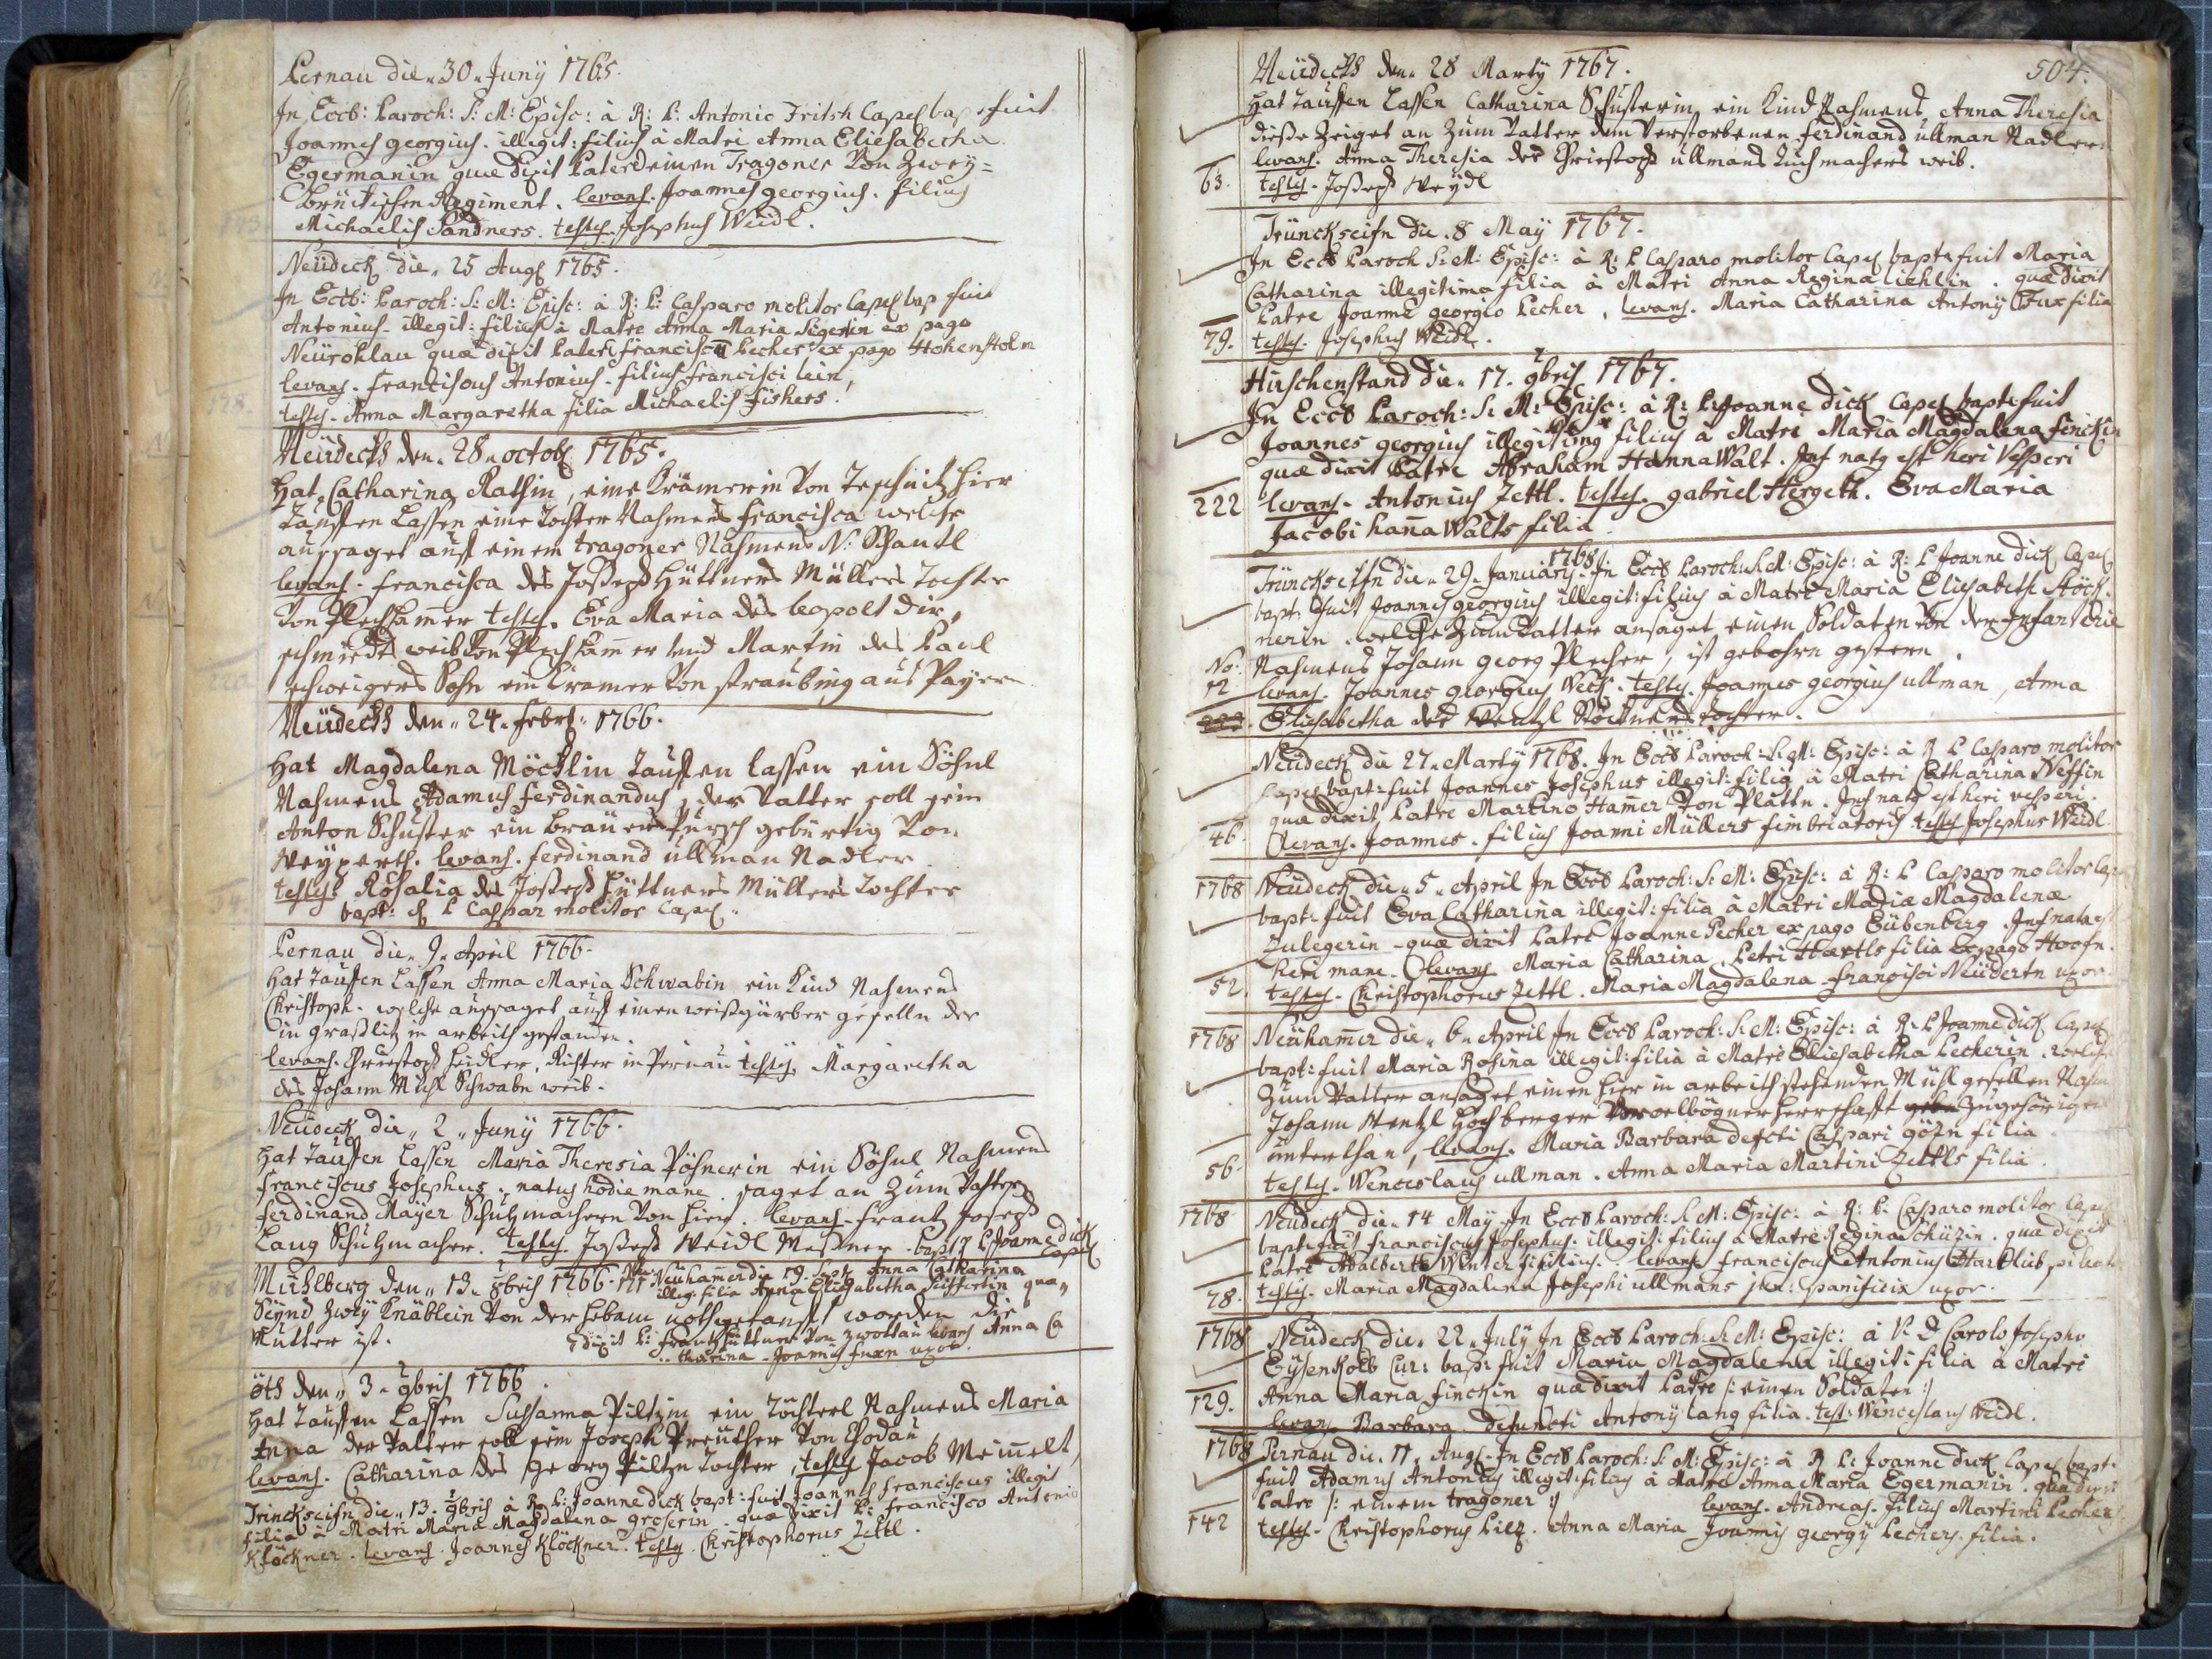 Pernau die 30 Juny 1765.
In Eccls: Paroch: S: M: Episc: à R: P: Antonio Fritsh Capel bap fuit
Joannes georgius illegit: filius à Matri Anna Eliesabetha
Egermanin quæ dixit Pater einen Tragoner Von Zwey=
brückischen Regiment. levans. Joannes georgius. filius
Michaelis Sandners. testes. Josephus Weidl.
Neüdeck die 25 Aug 1765.
In Eccls: Paroch: S: M: Episc: à R: P: Casparo molitor Capel bap fuit
Antonius illegit: filius à Matre Anna Maria Sigertin ex pago
Neürohlau quæ dixit Pater franciscū Pecher ex pago Hohenstoln
levans. franciscus Antonius filius francisci lein,
testes. Anna Margaretha filia Michaelis fishers.
Neüdeckh den 28 octob 1765.
Hat Catharina Rathin, eine Krämerin Von Teschnitz hier
Tauffen Lassen eine Tochter Nahmens francisca welche
aussaget auff einem tragoner Nahmens N: Schantl
levans. francisca des Josseph Hüttners Müllers Tochter
Von Plechhamer testes. Eva Maria des leopolt
schmidts weib Von Plechhamer und Martin des Paul
schweigers Sohn ein Cramer Von straubing aus Payern
Neüdeckh den 24 febr 1766.
Hat Magdalena Möcklin Tauffen lassen ein Söhnl
Nahmens Adamus ferdinandus, der Vatter soll sein
Anton Schuster ein Bräuer Pürsch gebürtig Von
Weyperth. levans. ferdinand ullman Nadler
testes. Rosalia des Josseph Hüttners Müllers Tochter
bapt: R P Caspar molitor Capel.
Pernau die 9 April 1766.
Hat Tauffen Lassen Anna Maria Schwabin ein Kind Nahmens
Christoph. welche aussaget auff einen weißgürber geselln der
in graßlitz in arbeith gestanden.
levans. Christoph Heidler, Richter in Pernau testes. Margaretha
des Johann Schwabn weib.
Neüdeck die 2 Juny 1766.
Hat Tauffen Lassen Maria Theresia Pösnerin ein Söhnl Nahmens
franciscus Josephus. natus hodie mane. saget an Zum Vatter
ferdinand Mayer Schuhmachern Von hier. levans. frantz Joseph
Lang Schuhmacher. testes Josseph Weidl Meßner. bapt P Joanne dick Capel
Mühlberg den 13 8bris 1766. Neühamer die 19 Anna Catharina
illeg: filia Anna Eliesabetha quæ
Seynd Zwey Knäblein Von der Hebam nothgetaufft worden die
Mutter ist. dixit P: frantz Hüttner Von Zwottau levans Anna Ca
tharina Joannis fuxn uxor.
öth den 3 9bris 1766.
Hat Tauffen Lassen Sussanna Piltzin ein Töchterl Nahmens Maria
Anna der Vatter soll sein Joseph Preüther Von Chodau
levans. Catharina des georg Piltzn Tochter, testes Jacob Meinelt,
Trinckseifn die 13. 9bris à R P: Joanne dick bapt: fuit Joannes franciscus illegit
filius à Matri Maria Magdalena groserin. quæ dixit P: francisco Antonio
Klöckner. levans. Joannes Klöckner. testes. Christophorus Zettl.
504.
Neüdeckh den 28 Marty 1767.
Hat Tauffen Lassen Catharina Schusterin ein Kind Nahmens Anna Theresia
diese Zeiget an Zum Vatter den Verstorbenen ferdinand ullman Nadler
levans. Anna Theresia des Christoph ullmans Tuchmachers weib.
63. testes. Josseph Weydl
Trünckseifn die 8 May 1767.
In Eccls Paroch S: M: Episc: à R: P Casparo molitor Capel bapt: fuit Maria
Catharina illegitima filia à Matri Anna Regina liehlin. quæ dixit
Patre Joanne georgio Pecher, levans. Maria Catharina Antony fux filia
79. testes. Josephus Weidl.
Hirschenstand die 17. 9bris 1767.
In Eccls Paroch: S: M: Episc: à R: P: Joanne dick Capel bapt: fuit
Joannes georgius illegitimus filius à Matre Maria Magdalena finckin
quæ dixit Patre Abraham Hannawalt. Inf natus est heri Vesperi
222 levans. Antonius Zettl. testes. gabriel Hergeth. Eva Maria
Jacobi hannawalts filia
Trünckseifn die 29 January 1768 In Eccls Paroch: S: M: Episc: à R: P Joanne dick Capel
bapt: fuit Joannes georgius illegit: filius à Matre Maria Eliesabeth Stöck=
nerin. welche Zum Vatter ansaget einen Soldaten Von der Infanterie
No: Nahmens Johann georg Plecher, ist gebohrn gestern.
12 levans. Joannes georgius Weck. testes. Joannes georgius ullman, Anna
223. Eliesabetha des Wentzl Stöckners Tochter.
Neüdeck die 27 Marty 1768. In Eccls Paroch: S: M: Episc: à R P Casparo molitor
Capel bapt: fuit Joannes Josephus illegit: filius à Matri Catharina Neffin
quæ dixit Patre Martino Hamer Von Plattn. Inf natus est heri vesperi.
46. levans. Joannes. filius Joanni Müllers fimbriatoris testes Josephus Weidl.
1768 Neüdeck die 5 April In Eccls Paroch: S: M: Episc: à R: P Casparo molitor Cap
bapt: fuit Eva Catharina illegit: filia à Matri Madiæ Magdalenæ
Zulegerin quæ dixit Patre Joanne Pecher ex pago Eübenberg. Inf nata est
heri mane. levans Maria Catharina, Petri Hartls filia ex pago Hoofn.
52. testes. Christophorus Zettl. Maria Magdalena francisci Neüdertn uxor.
1768 Neühamer die 6 April In Eccls Paroch: S: M: Episc: à R: P Joanne dick Capel
bapt: fuit Maria Rosina illegit: filia à Matre Eliesabetha Pecherin. welche
Zum Vatter ansaget einen hier in arbeith stehenden Mühl gesellen Nahm
Johann Wentzl Hochberger Herrschafft Zugehörigen
unterthan, levans. Maria Barbara defcti Caspari götzn filia.
56. testes. Wenceslaus ullman. Anna Maria Martini Zettls filia.
1768 Neüdeck die 14 May In Eccls Paroch: S: M: Episc: à R: P. Casparo molitor Capel
bapt: fuit franciscus Josephus illegit: filius à Matre Regina Schüzin. quæ dixit
Patre Adalberts Winter filius. levans franciscus Antonius
78. testes. Maria Magdalena Josephi ullmans jun: panificis uxor.
1768 Neüdeck die 22 July In Eccls Paroch: S: M: Episc: à V: D Carolo Josepho
Eysenkolb Cur: bapt: fuit Maria Magdalena illegiti filia à Matri
129. Anna Maria finckin quæ dixit Patre /: einen Soldaten :/
levans Barbara defuncti Antony lang filia. test: Wenceslaus Weidl.
1768 Pernau die 11 Aug In Eccls Paroch: S: M: Episc: à R P: Joanne dick Capel bapt:
fuit Adamus Antonius illegit: filius à Matre Anna Maria Egermanin. quæ dixit
Patre /: einem tragoner :/ levans. Andreas. filius Martini Pecher
142 testes. Christophorus Pilz. Anna Maria Joannis georgy Pechers. filia.